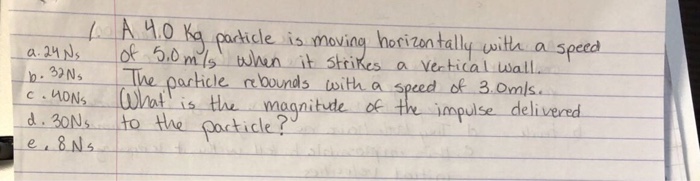 1. A 4.0 Kg particle is moving horizontally with a speed
of 5.0 m/s when it strikes a vertical wall.
The particle rebounds with a speed of 3.0m/s.
What is the magnitude of the impulse delivered
to the particle?
a. 24 Ns
b. 32 Ns
c. 40Ns
d. 30Ns
e. 8 Ns